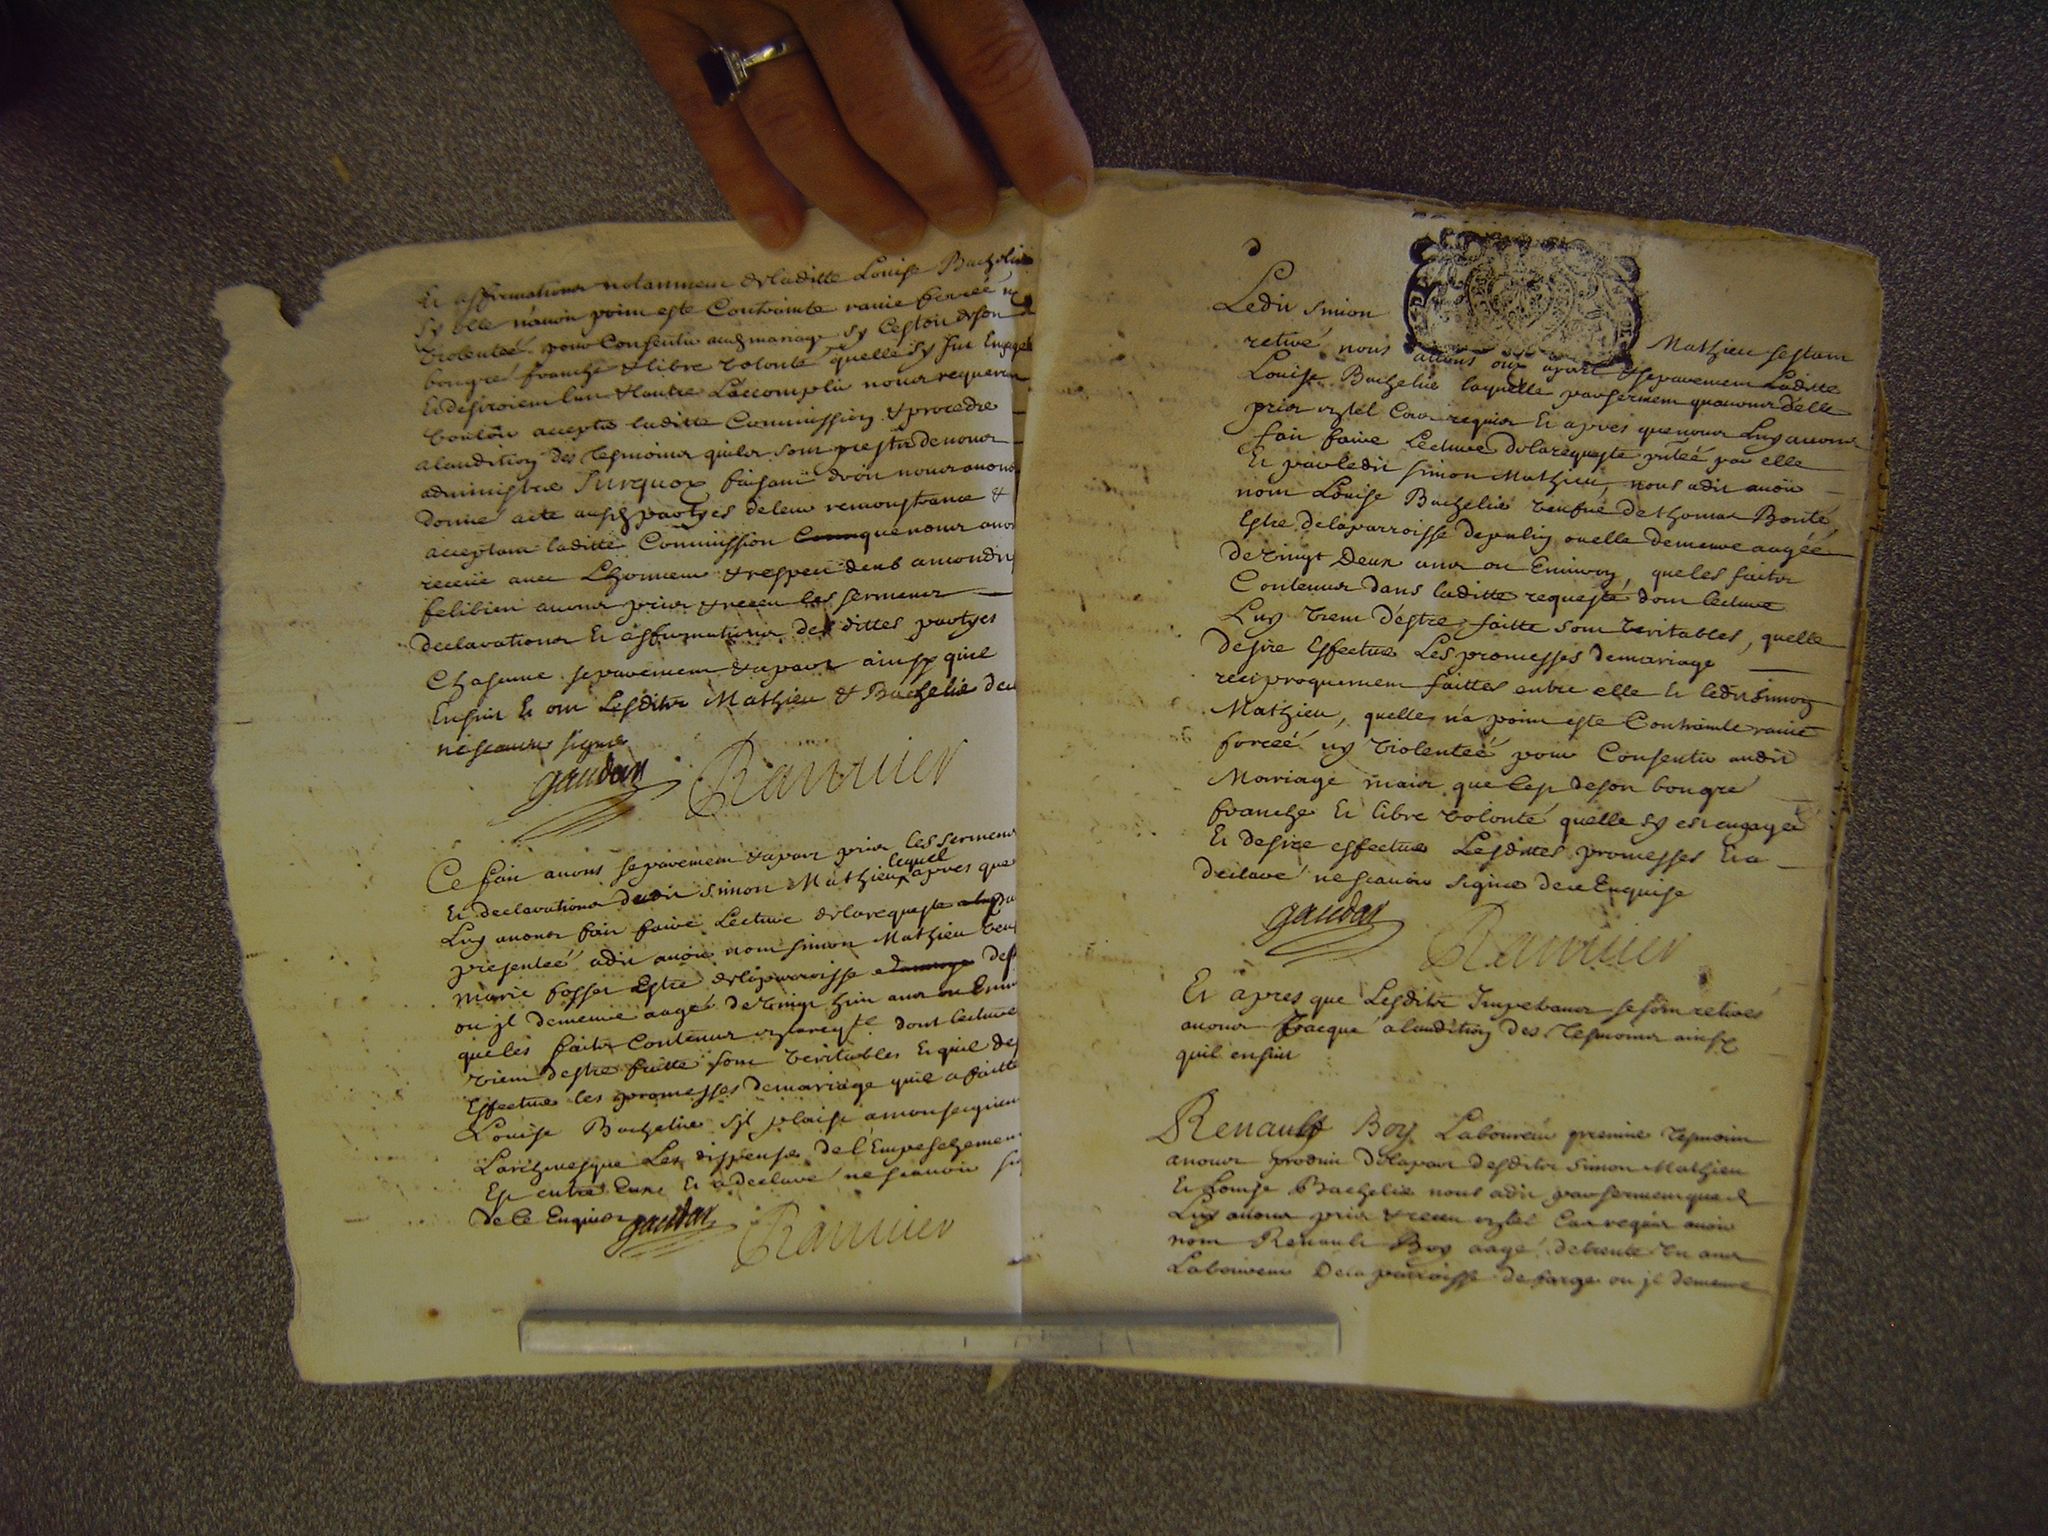 Et affirmations notamment de laditte Louise Bachelie
Sy elle n'auoit point esté Contrainte rauie forcée ny
violenteé pour Consentir audit mariage sy Cestoit de son
bongré franche & libre volonté quelle sy fut Engagé
Et desiroient lun & lautre Laccomplir nous requerant
vouloir accepter laditte Commission & proceder
alaudition des tesmoins quils sont prests denous
administrer Surquoy faisant droit nous auons
donné acte ausd partyes de leur remonstrance &
acceptant laditte Commission que nous auons
receue auec Lhonneur & respect deub amondit
felibien auons pris & receu les serments
declarations Et affirmations des dittes partyes
Chascune separement & apart ainsy quil
Ensuit Et ont Lesdits Mathieu & Bachelié de
ne scauoir signer
gaudar Rannier
Ce fait auons separement & apart pris les serment
Et declarations dudit Simon Mathieu lequel apres que
Luy auons fait faire Lecture de la requeste
presenteé a dit auoir nom Simon Mathieu
marie fosset Estre de la parroisse
ou jl demeure aagé de vingt huit ans ou Enui
que les faits Contenus dont lecture
vient destre faitte sont veritables Et quil de
Effectuer les promesses de mariage quil a faitte
Louise Bachelie sjl plaise a monseigneur
Larchevesque Les dispenser de l'Empeschement
Est entre Eux Et a declaré ne scauoir
de ce Enquis gaudar Rannier
Ledit Simon Mathieu sestant
retiré nous auons ouy apart & separement Laditte
Louise Bachelie laquelle par serment quauons d'elle
pris Cas requis Et apres que nous Luy auons
fait faire Lecture de la requeste pnteé par elle
Et par ledit Simon Mathieu, nous a dit auoir
nom Louise Bachelie veufue de thomas Bonté
Estre de la parroisse ou elle demeure aagée
de vingt Deux ans ou Enuiron, que les faits
Contenus dans laditte requeste, dont lecture
Luy vient d'estre faitte sont veritables, quelle
desire Effectuer Les promesses de mariage
reciproquement faittes entre elle Et ledit Simon
Mathieu, quelle n'a point esté Contrainte rauie
forceé ny violenteé pour Consentir audit
Mariage mais que Cest de son bongré
franche Et libre volonté quelle sy est engageé
Et desire effectuer Lesdittes promesses Et a
declaré ne scauoir signer de ce Enquise
gaudar Rannier
Et apres que Lesdits Impetrans se sont retirés
auons vacqué a laudition des tesmoins ainsy
quil ensuit
Renault Boy Laboureur premier tesmoin
anous produit de la part desdits Simon Mathieu
Et Louise Bachelie nous a dit par serment que de
Luy auons pris & receu Cas requis auoir
nom Renault Boy aagé de trente vn ans
Laboureur De la parroisse de farge ou jl demeure